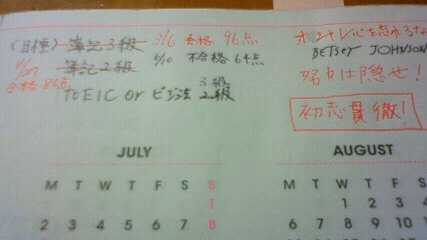 〈目標〉簿記3級 3/6 合格 96点
簿記2級 6/10 不合格 64点
11/27
合格 86点
3級
TOEIC or ビジ法 2級
オシャレ心を忘れるな
BETSEY JOHNSON
努力は隠せ!
初志貫徹!
JULY
M T W T F S S
1
2 3 4 5 6 7 8
AUGUST
M T W T F
1 2 3 4
6 7 8 9 10